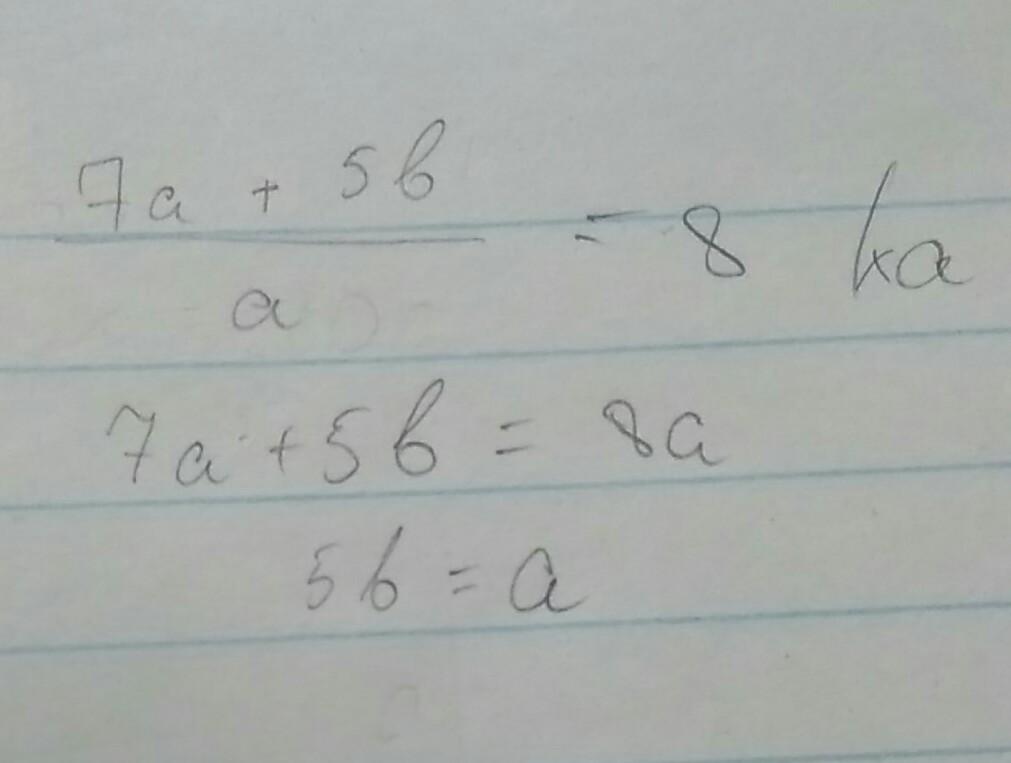 7a + 5b
a
= 8 /×a
7a + 5b = 8a
5b = a